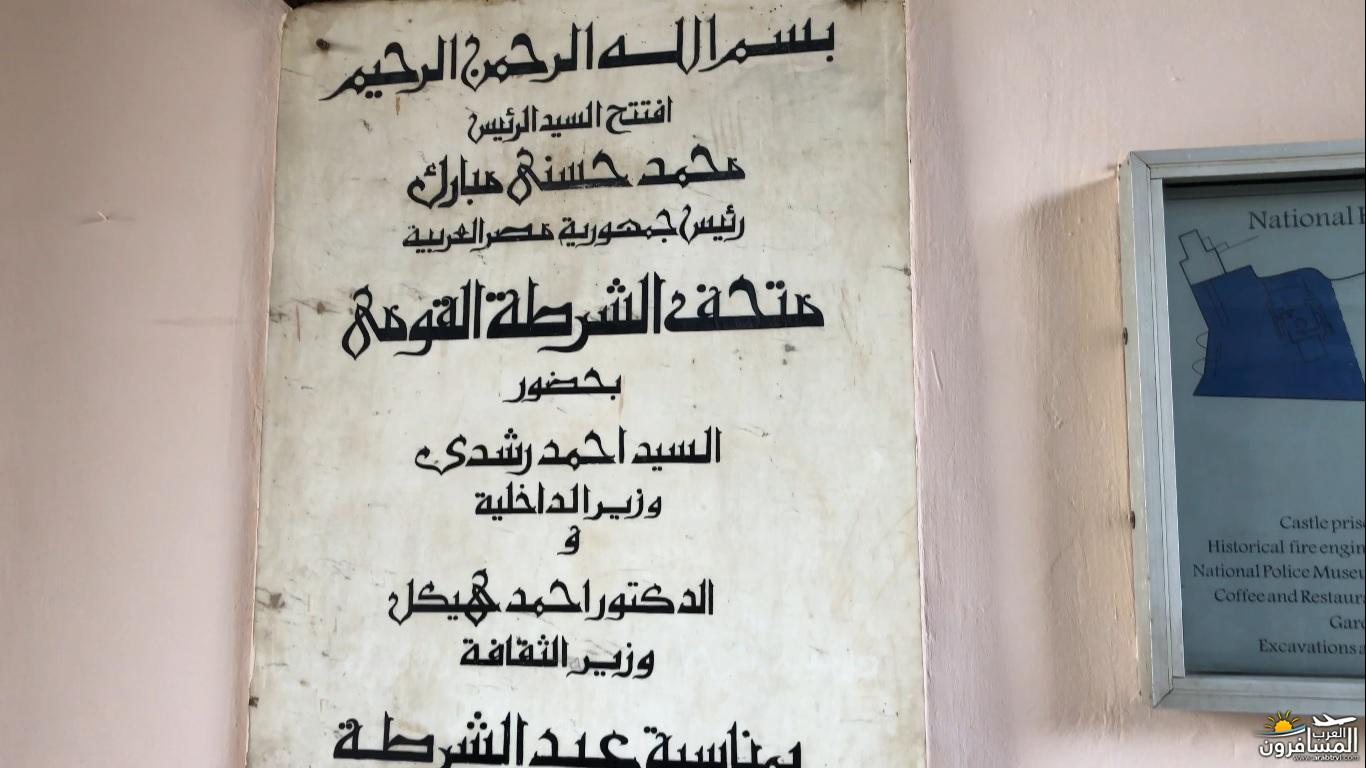 بسم الله الرحمن الرحيم
افتتح السيد الرئيس
محمد حسنى مبارك
رئيس جمهورية مصر العربية
متحف الشرطة القومى
بحضور
السيد احمد رشدى
وزير الداخلية
و
الدكتور احمد هيكل
وزير الثقافة
بمناسبة عيد الشرطة
National
Castle
Historical fire
National Police
Coffee and
Excavations
العرب
المسافرون
www.arabtrvl.com